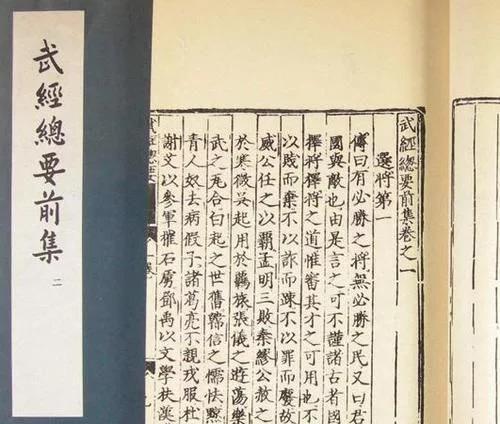 武經總要前集
二
武經總要前集卷之一
選將第一
傳曰有必勝之將無必勝之民又曰君
國與敵也由是言之可不謹諸古者國
擇將擇將之道惟審其才之可用也不
以賤而棄不以詐而疎不以罪而廢故
威公任之以覇孟明三敗秦繆公赦之
於寒微吳起用於羈旅張儀之遊蕩樂
武之合白起之世舊韓信之懦怯黥
青人奴去病假子諸葛亮不親戎服杜
謝文以參軍擢石虜鄧禹以文學扶漢